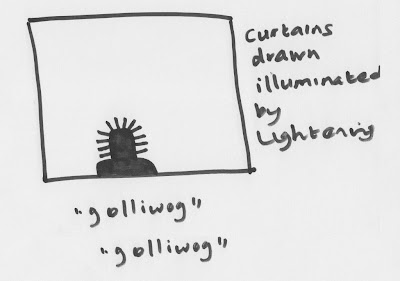 curtains
drawn
illuminated
by
Lightening
"golliwog"
"golliwog"